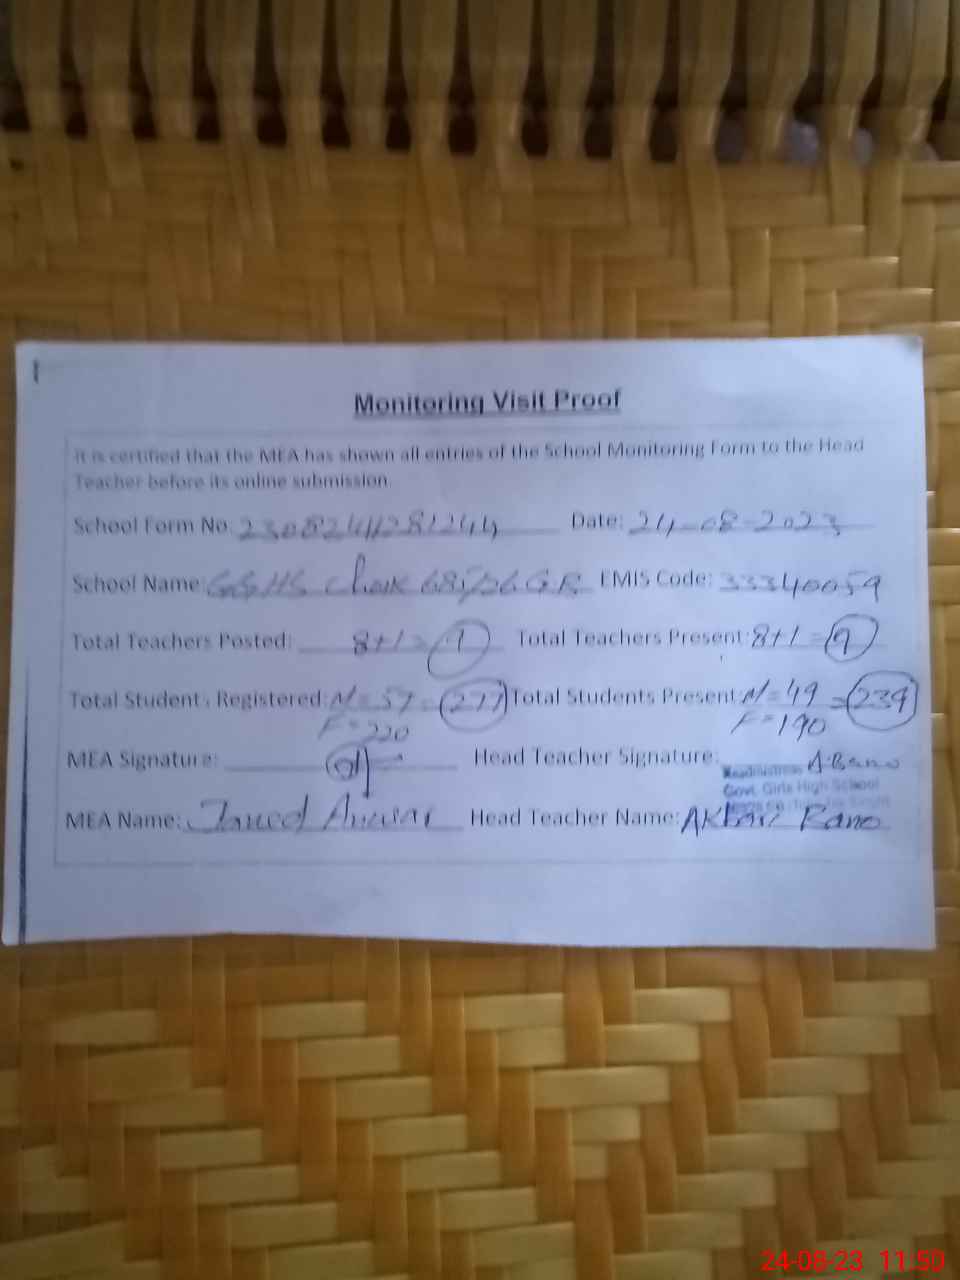 Monitoring Visit Proof
It is certified that the MEA has shown all entries of the School Monitoring Form to the Head
Teacher before its online submission.
School Form No. Date: 24-08-2023
School Name: GGHS Chak EMIS Code: 33340059
Total Teachers Posted: 8+1= Total Teachers Present: 8+1=9
Total Students Registered: M=57 =277 Total Students Present: M=49 =239
F=220 F=190
MEA Signature: Head Teacher Signature: A.Bano
Headmistress
Govt. Girls High School
MEA Name: Javed Anwar Head Teacher Name: Akbari Bano
24-08-23 11:50